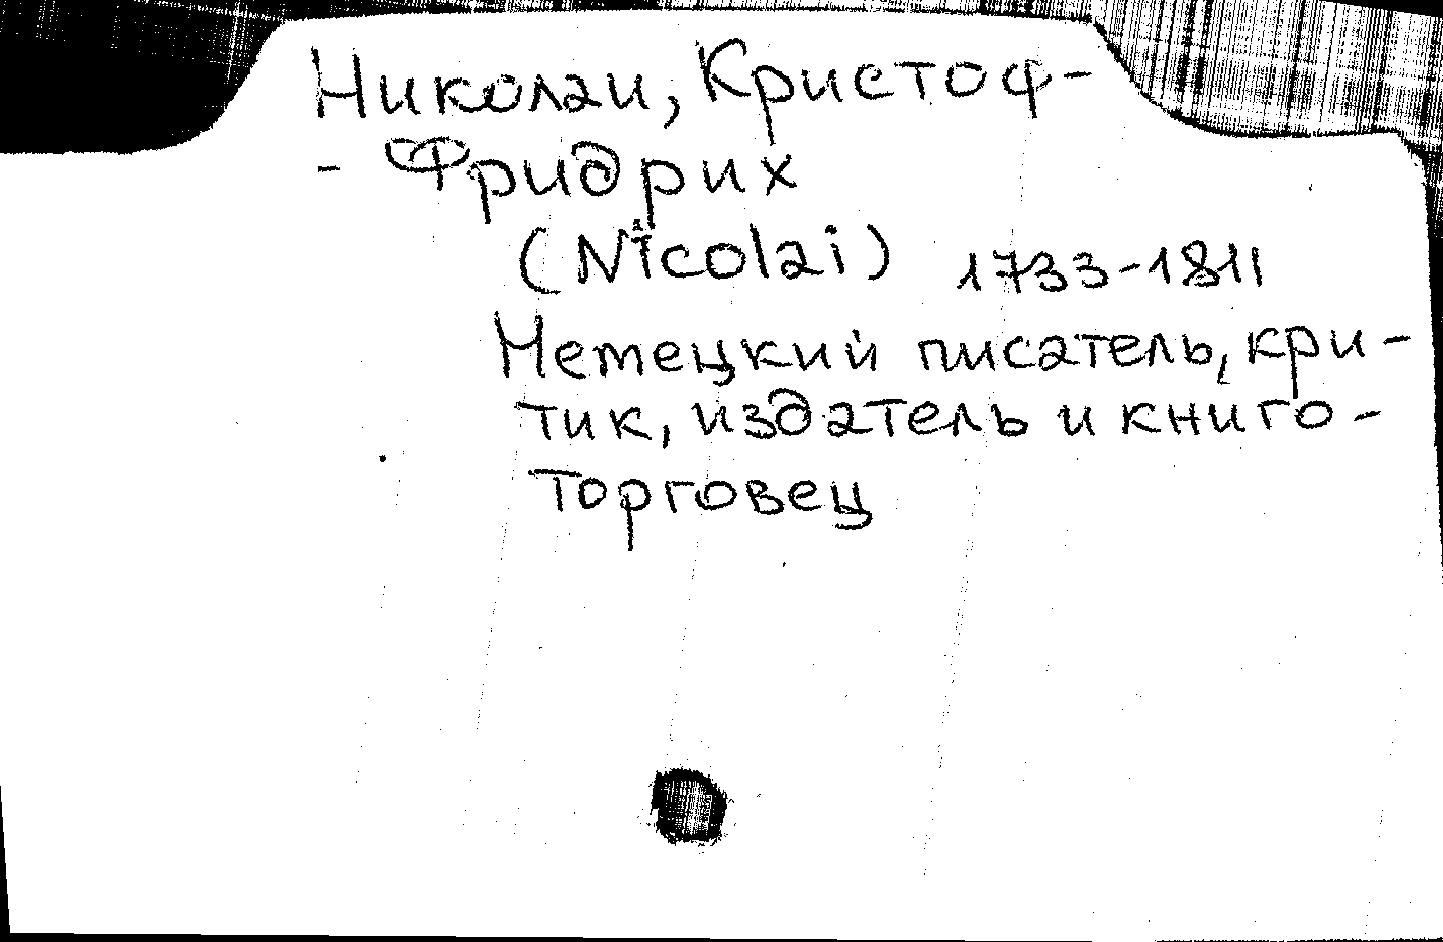 Николаи, Кристоф-
- Фридрих
(Nicolai) 1733-1811
Немецкий писатель, кри-
тик, издатель и книго-
торговец